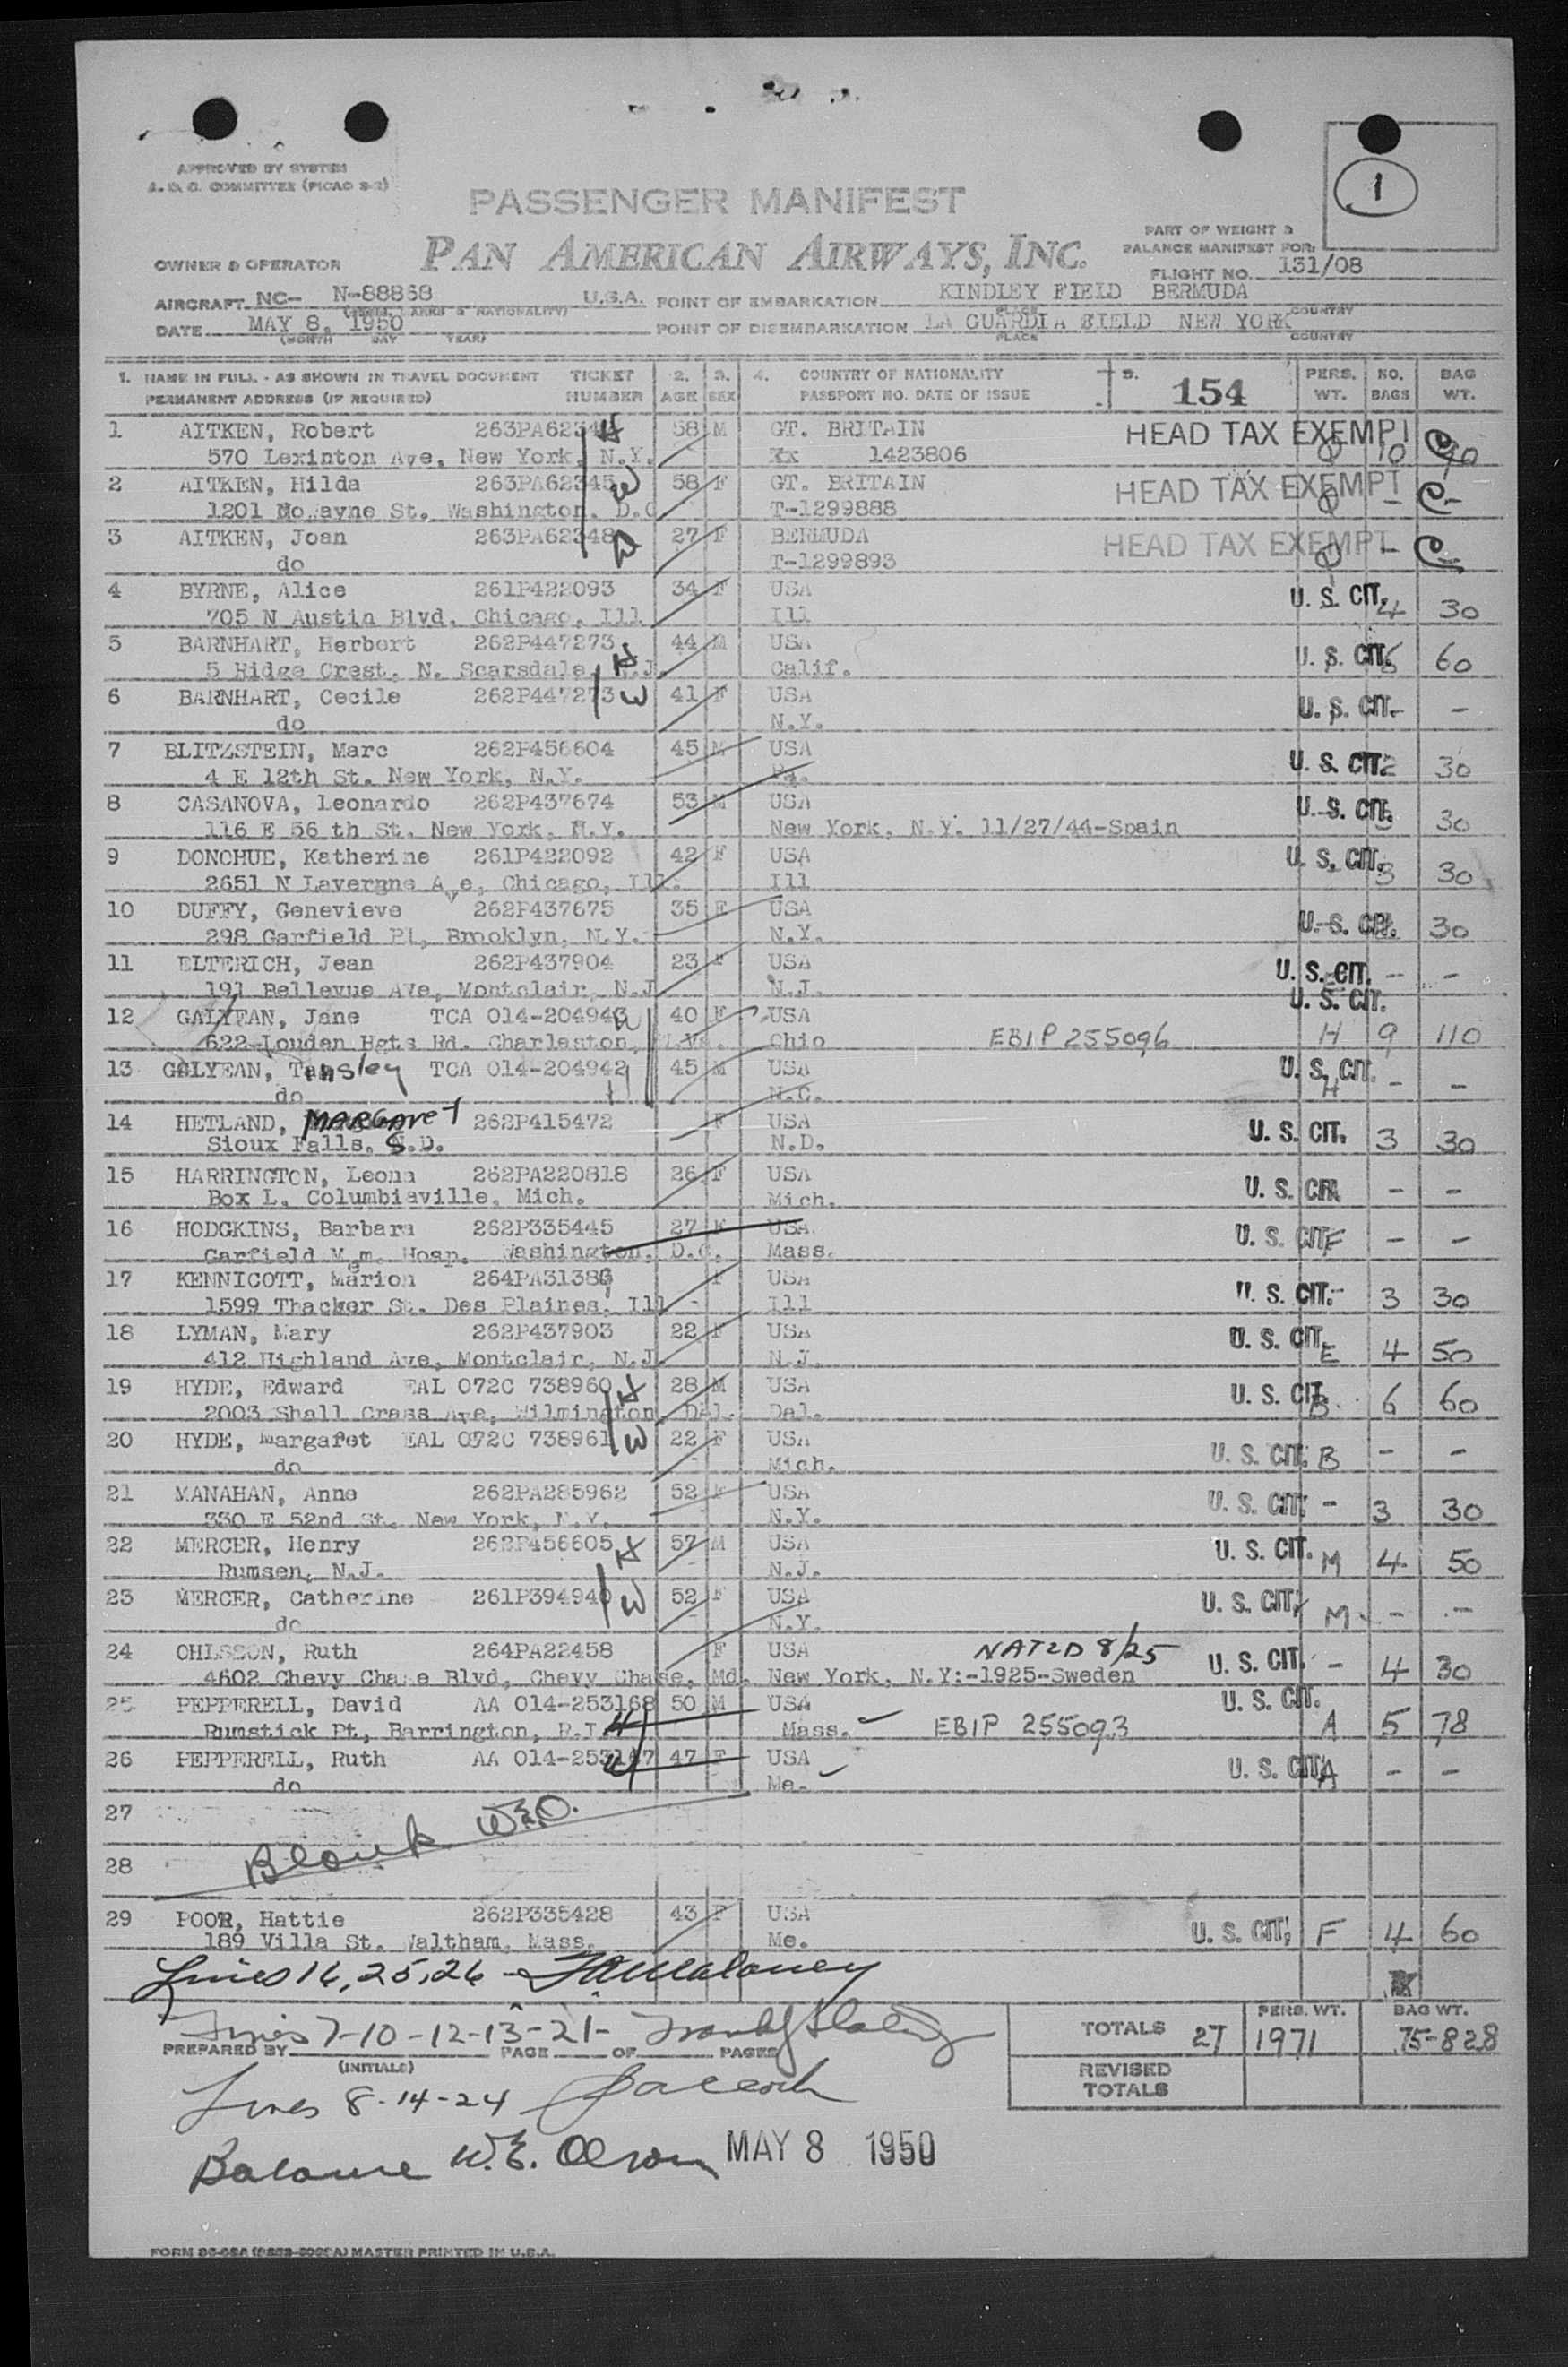 1
APPROVED BY SYSTEM
A. O. C. COMMITTEE (PICAO S-2)
PASSENGER MANIFEST
PAN AMERICAN AIRWAYS, INC.
PART OF WEIGHT &
BALANCE MANIFEST FOR:
OWNER & OPERATOR
FLIGHT NO. 131/08
AIRCRAFT NC- N-88868 U.S.A. POINT OF EMBARKATION KINDLEY FIELD BERMUDA
DATE MAY 8, 1950 POINT OF DISEMBARKATION LA GUARDIA FIELD NEW YORK
(MONTH DAY YEAR) PLACE COUNTRY
1. NAME IN FULL - AS SHOWN IN TRAVEL DOCUMENT TICKET 2. 3. 4. COUNTRY OF NATIONALITY 5. 154 PERS. NO. BAG
PERMANENT ADDRESS (IF REQUIRED) NUMBER AGE SEX PASSPORT NO. DATE OF ISSUE WT. BAGS WT.
1 AITKEN, Robert H 58 M GT. BRITAIN HEAD TAX EXEMPT
570 Lexinton Ave, New York, N.Y. Xx 1423806 10 90
2 AITKEN, Hilda 263PA62345 W 58 F GT. BRITAIN HEAD TAX EXEMPT
1201 St. Washington, D.C T-1299888 - -
3 AITKEN, Joan 263PA62348 D 27 F BERMUDA HEAD TAX EXEMPT
do T-1299893 - -
4 BYRNE, Alice 261P422093 34 F USA U. S. CIT.
705 N Austin Blvd, Chicago, Ill Ill 4 30
5 BARNHART, Herbert 262P447273 H 44 M USA U. S. CIT.
5 Ridge Crest, N. Scarsdale, Calif. 6 60
6 BARNHART, Cecile 262P447273 W 41 F USA U. S. CIT. - -
do N.Y.
7 BLITZSTEIN, Marc 262P456604 45 M USA U. S. CIT.
4 E 12th St. New York, N.Y. Pa. 2 30
8 CASANOVA, Leonardo 262P437674 53 M USA U. S. CIT.
116 E 56 th St. New York, N.Y. New York, N.Y. 11/27/44-Spain 3 30
9 DONOHUE, Katherine 261P422092 42 F USA U. S. CIT.
2651 N Lavergne Ave, Chicago, Ill. Ill 3 30
10 DUFFY, Genevieve 262P437675 35 F USA U. S. CIT.
298 Garfield Pl, Brooklyn, N.Y. N.Y. 30
11 ELTERICH, Jean 262P437904 23 F USA U. S. CIT. - -
191 Bellevue AVe, Montclair, N.J N.J.
U. S. CIT.
12 GALYEAN, Jane TCA 014-204943 W 40 F USA
622 Louden Hgts Rd. Charleston, W.Va. Ohio EBIP 255096 H 9 110
13 GALYEAN, Tansley TCA 014-204942 H 45 M USA U. S. CIT.
do N.C. H - -
14 HETLAND, MARGAreT 262P415472 F USA U. S. CIT.
Sioux Falls, S.D. N.D. 3 30
15 HARRINGTON, Leona 262PA220818 26 F USA U. S. CIT.
Box L, Columbiaville, Mich. Mich. - -
16 HODGKINS, Barbara 262P335445 27 F USA U. S. CIT. F - -
Garfield Mem. Hosp. Washington, D.C. Mass.
17 KENNICOTT, Marion 264PA31386 F USA U. S. CIT.
1599 Thacker St. Des Plaines, Ill Ill - 3 30
18 LYMAN, Mary 262P437903 22 F USA U. S. CIT.
412 Highland Ave, Montclair, N.J N.J. E 4 50
19 HYDE, Edward EAL 072C 738960 H 28 M USA U. S. CIT.
2003 Shall Crass Ave, Wilmington, Del. Del. B 6 60
20 HYDE, Margaret EAL 072C 738961 W 22 F USA
do Mich. U. S. CIT. B - -
21 MANAHAN, Anne 262PA285962 52 F USA U. S. CIT. -
330 E 52nd St. New York, N.Y. N.Y. 3 30
22 MERCER, Henry 262P456605 H 57 M USA U. S. CIT.
Rumsen, N.J. N.J. M 4 50
23 MERCER, Catherine 261P394940 W 52 F USA U. S. CIT.
do N.Y. M - -
24 OHLSSON, Ruth 264PA22458 F USA NATZD 8/25 U. S. CIT. -
4602 Chevy Chase Blvd, Chevy Chase, Md. New York, N.Y:-1925-Sweden 4 30
25 PEPPERELL, David AA 014-253168 50 M USA U. S. CIT.
Rumstick Pt, Barrington, R.I. H Mass. EBIP 255093 A 5 78
26 PEPPERELL, Ruth AA 014-253167 W 47 F USA U. S. CIT. A - -
do Me.
27
Blank W.E.O.
28
29 POOR, Hattie 262P335428 43 F USA
189 Villa St. Waltham, Mass. Me. U. S. CIT. F 4 60
Lines 16, 25, 26 - Maloney
Lines 7-10-12-13-21-
PREPARED BY (INITIALS) PAGE OF PAGES
TOTALS 27 PERS. WT. 1971 BAG WT. 75-828
REVISED
TOTALS
Lines 8-14-24
Balance W.E. Olson MAY 8 1950